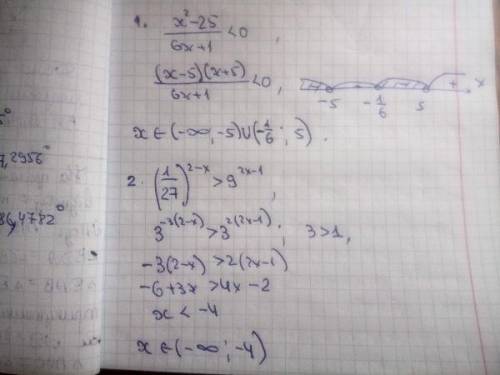 1. (x²-25)/(6x+1) <0 ,
((x-5)(x+5))/(6x+1) <0 ,
-5 -1/6 5 + x
x ∈ (-∞; -5) ∪ (-1/6; 5) .
2. (1/27)^(2-x) > 9^(2x-1) ;
3^(-3(2-x)) > 3^(2(2x-1)) ; 3>1,
-3(2-x) > 2(2x-1)
-6+3x > 4x-2
x < -4
x ∈ (-∞; -4)